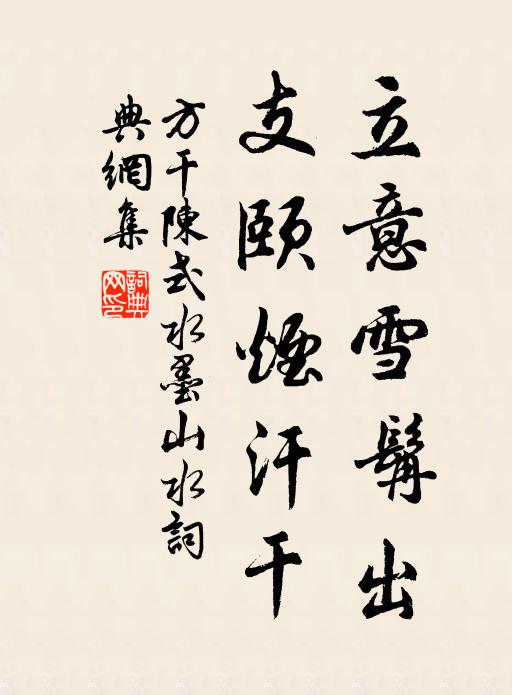 立意雪髯出
支頤煙汗干
方干陳式水墨山水詞
典網集
詞典網印